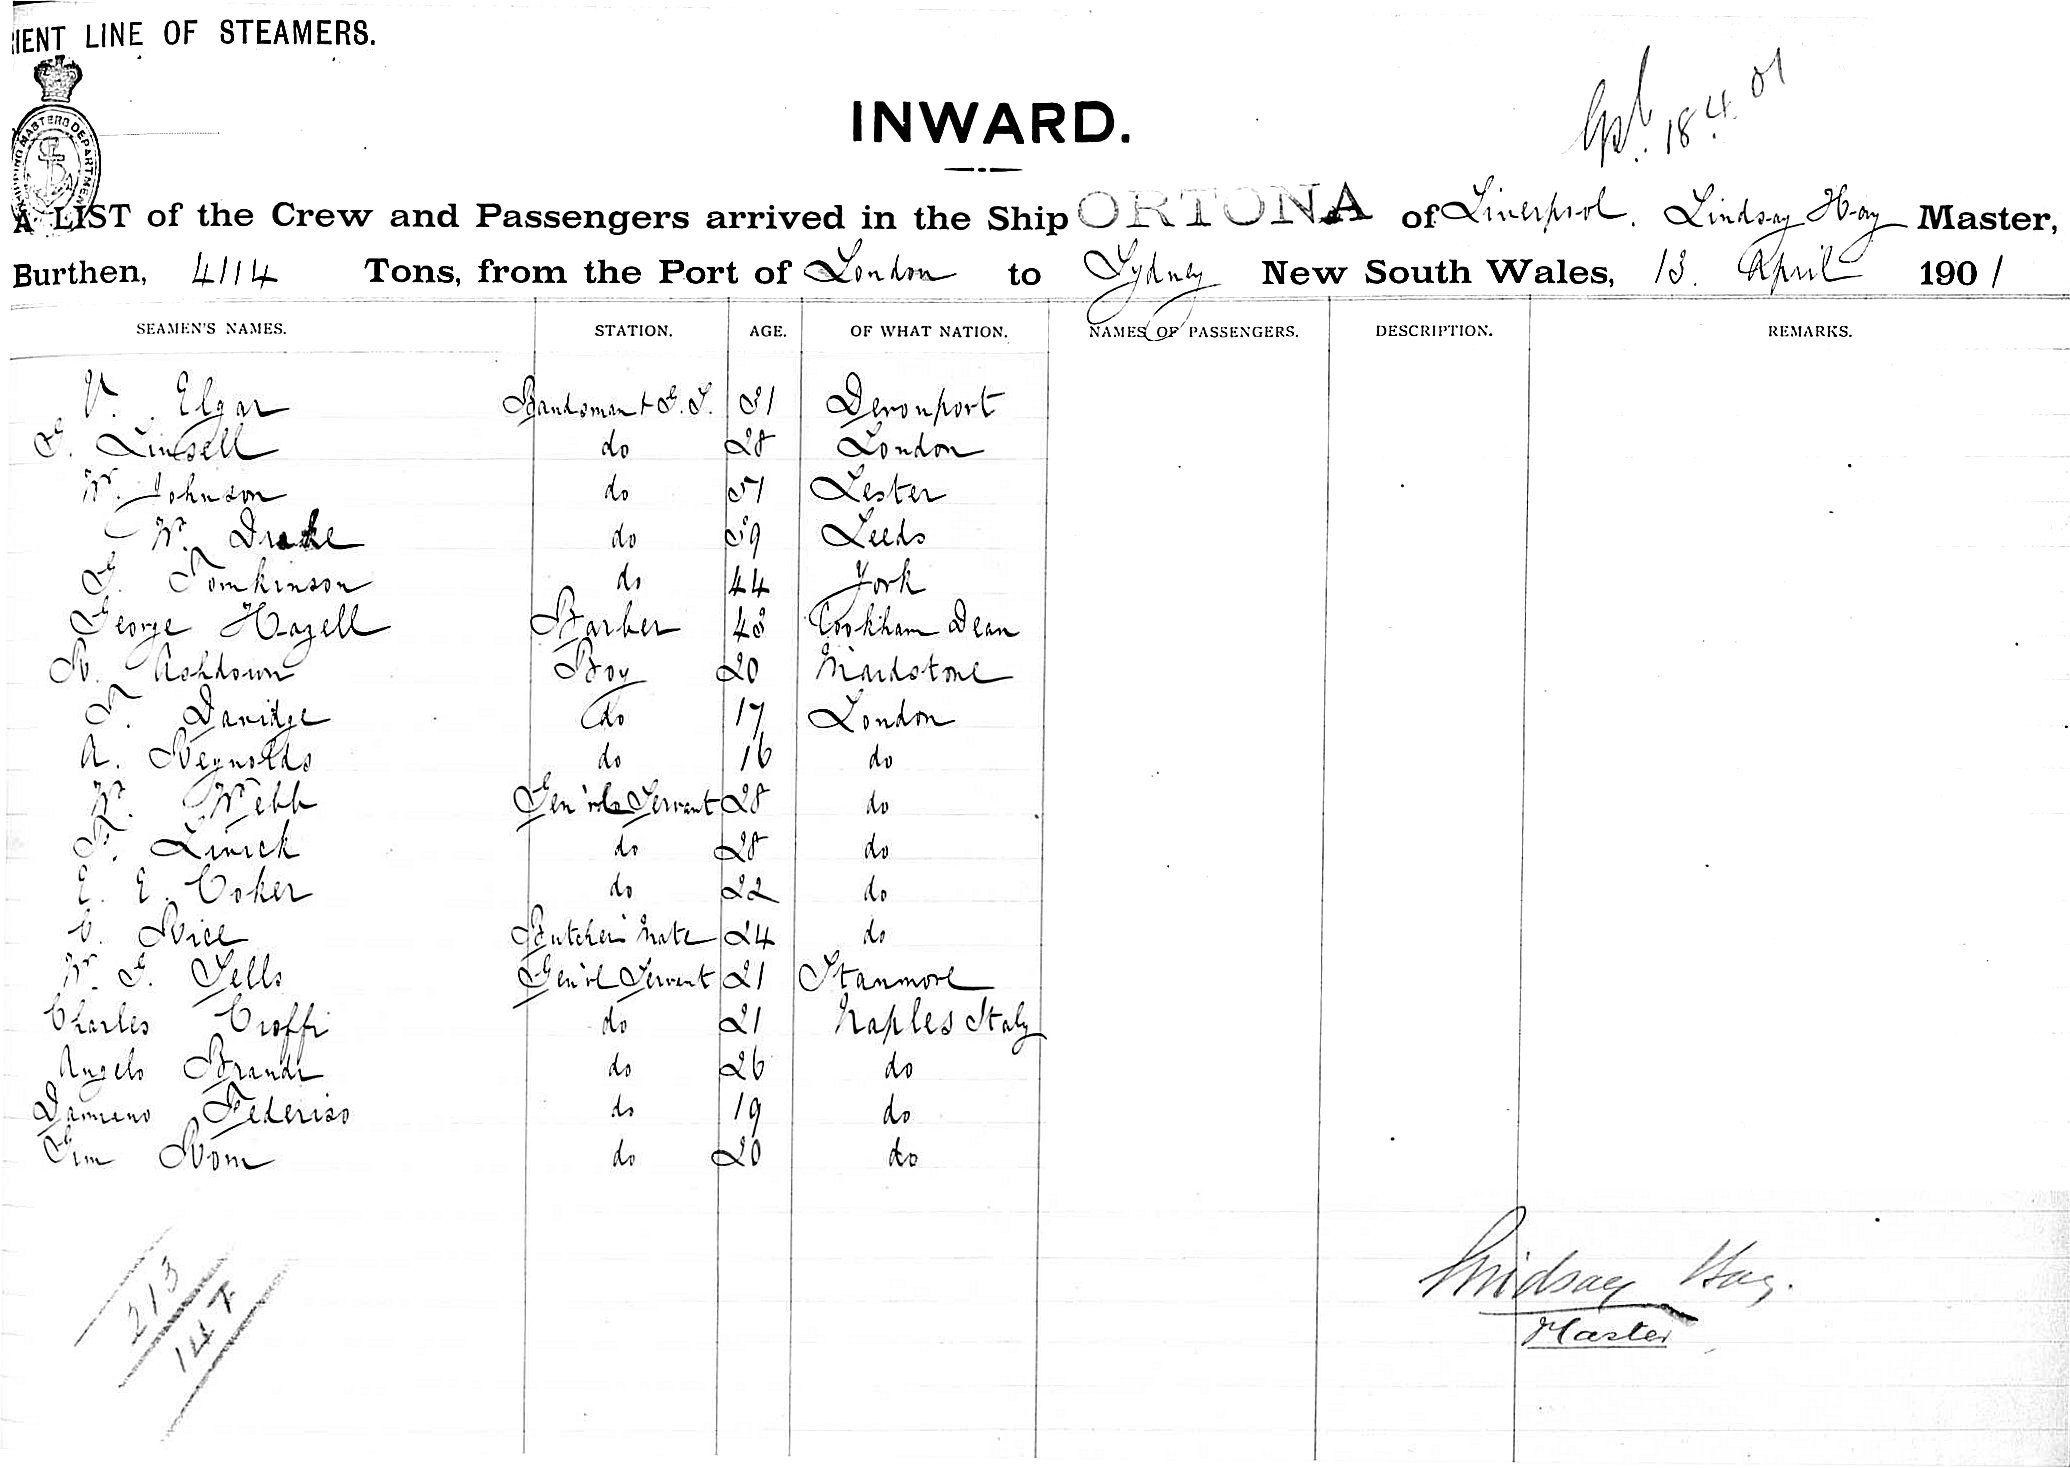 IENT LINE OF STEAMERS.
MASTERS DEPARTMEN
18.4.01
INWARD.
A LIST of the Crew and Passengers arrived in the Ship ORTONA of Liverpool. Lindsay Hay Master,
Burthen, 4114 Tons, from the Port of London to Sydney New South Wales, 13. April 1901
SEAMEN'S NAMES. STATION. AGE. OF WHAT NATION. NAMES OF PASSENGERS. DESCRIPTION. REMARKS.
V. Elgar Bandsman & G. S. 31 Devonport
G. Linsell do 28 London
W. Johnson do 51 Lester
W. Drake do 39 Leeds
G. Tomkinson do 44 York
George Hazell Barber 43 Cookham Dean
R. Ashdown Boy 20 Maidstone
T. Davidge do 17 London
A. Reynolds do 16 do
W. Webb Gen'rl Servant 28 do
F. Livick do 28 do
E. E. Coker do 22 do
C. Rice Butchers Mate 24 do
W. G. Sells Gen'rl Servant 21 Stanmore
Charles Cioffi do 21 Naples Italy
Angelo Brandi do 26 do
Damiano Federiso do 19 do
Gim Rom do 20 do
213
147
Lindsay Hay.
Master